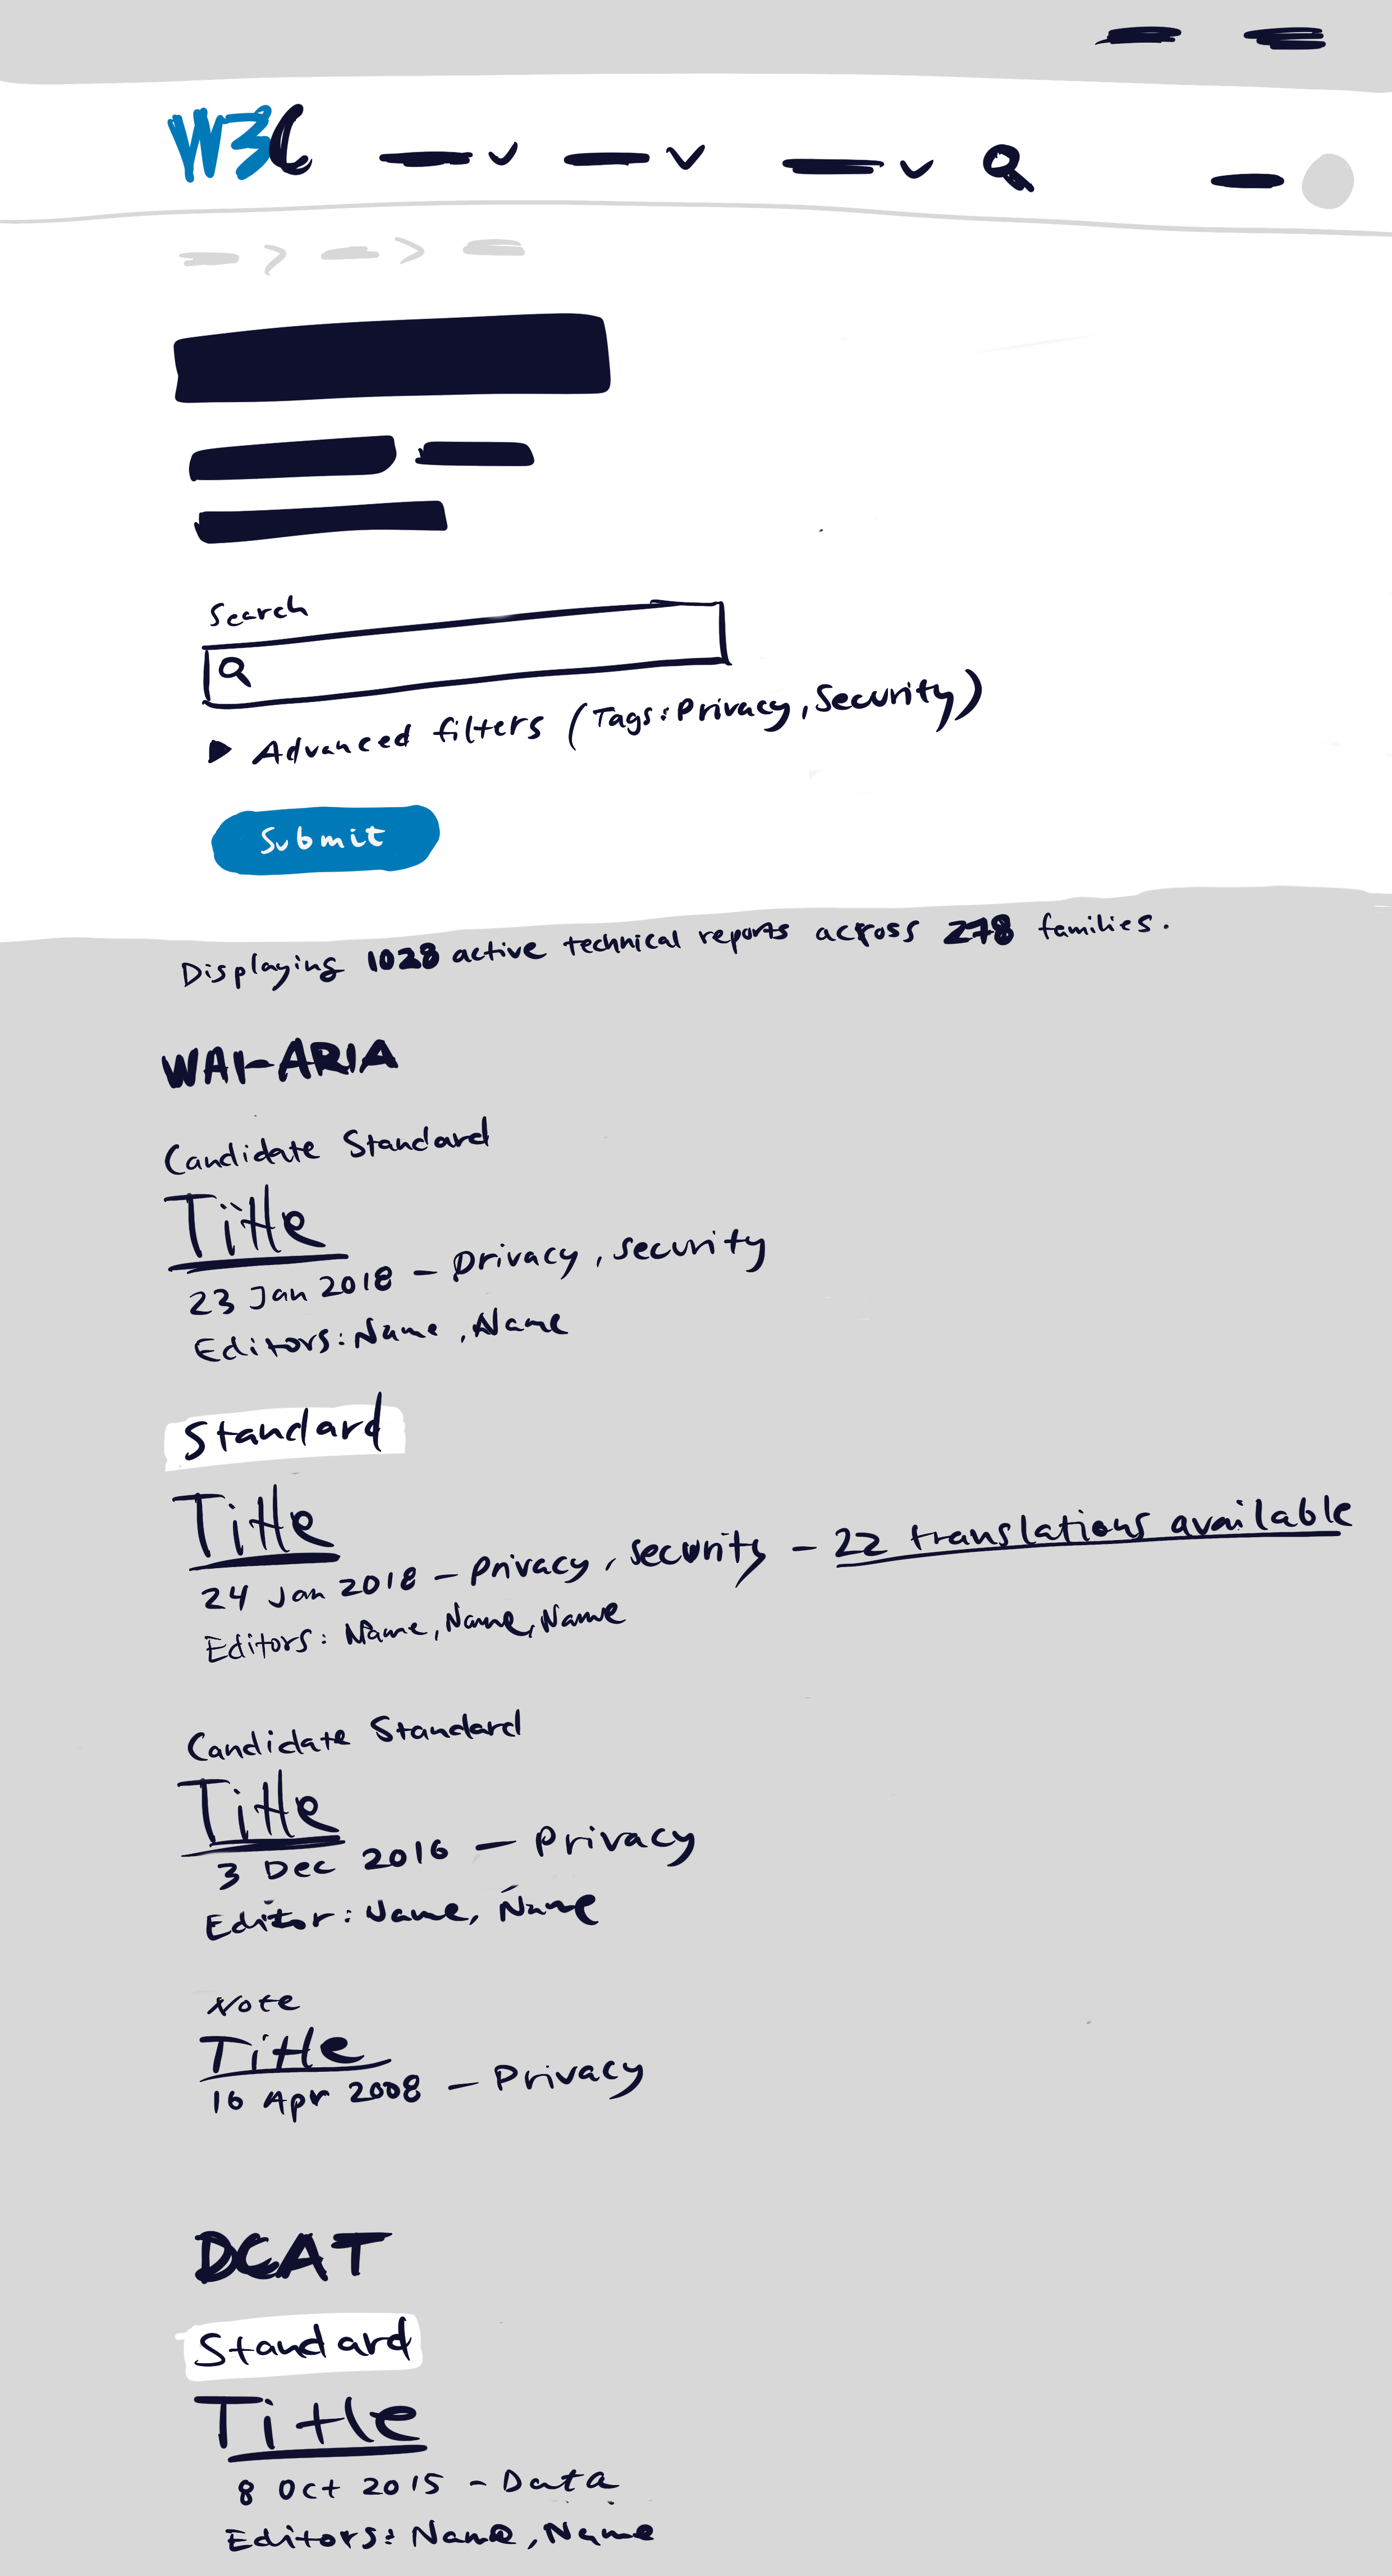 W3C
Search
Advanced filters (Tags: Privacy, Security)
Submit
Displaying 1028 active technical reports across 278 families.
WAI-ARIA
Candidate Standard
Title
23 Jan 2018 – privacy, security
Editors: Name, Name
Standard
Title
24 Jan 2018 – privacy, security – 22 translations available
Editors: Name, Name, Name
Candidate Standard
Title
3 Dec 2016 – Privacy
Editor: Name, Name
Note
Title
16 Apr 2008 – Privacy
DCAT
Standard
Title
8 Oct 2015 – Data
Editors: Name, Name